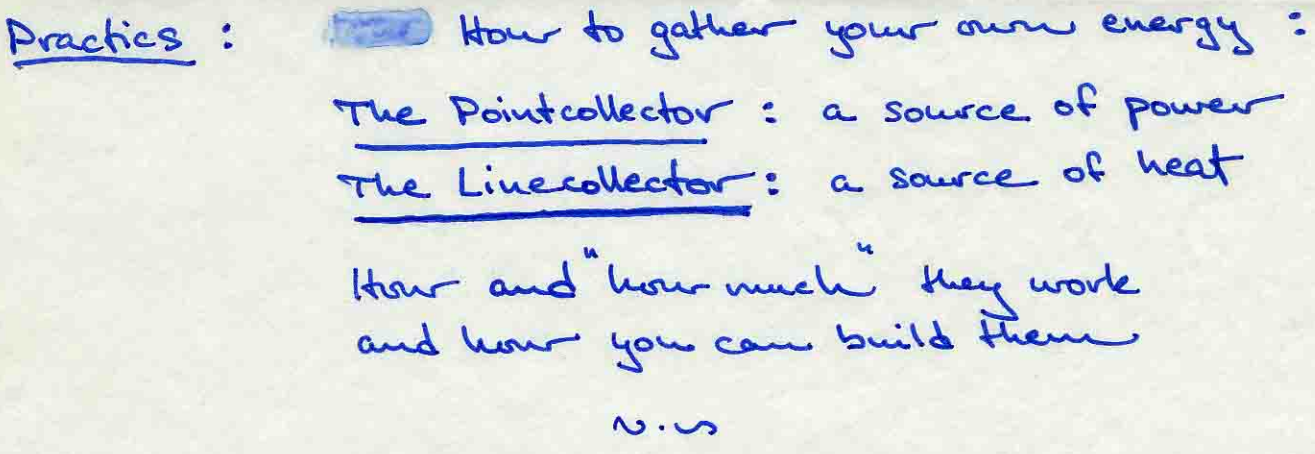 Practics : How to gather your own energy :
The Pointcollector : a source of power
The Linecollector : a source of heat
How and "how much" they work
and how you can build them